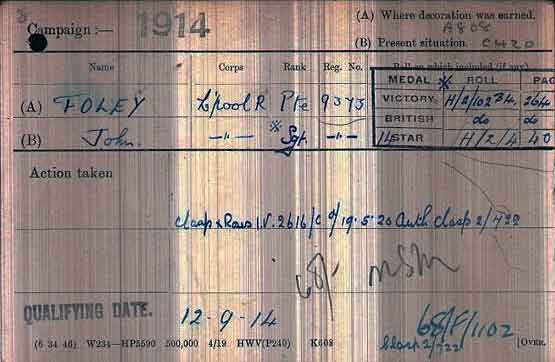 Campaign :— 1914
(A) Where decoration was earned.
A808
(B) Present situation. C420
Name Corps Rank Reg. No. Roll on which included (if any)
MEDAL ※ ROLL PAG
(A) FOLEY L'pool R Pte 9373 VICTORY H/2/102 B4. 264
BRITISH do do
(B) John. —"— ※ Sgt. —"— 14 STAR H/2/4 40
Action taken
Clasp & Roses I.V. 2616/C d/19.5.20 Auth Clasp 2/422
68/- MSM
QUALIFYING DATE. 12-9-14
68/F/1102
Clasp 2/
(6 34 46) W234—HP5590 500,000 4/19 HWV(P240) K608 [OVER.